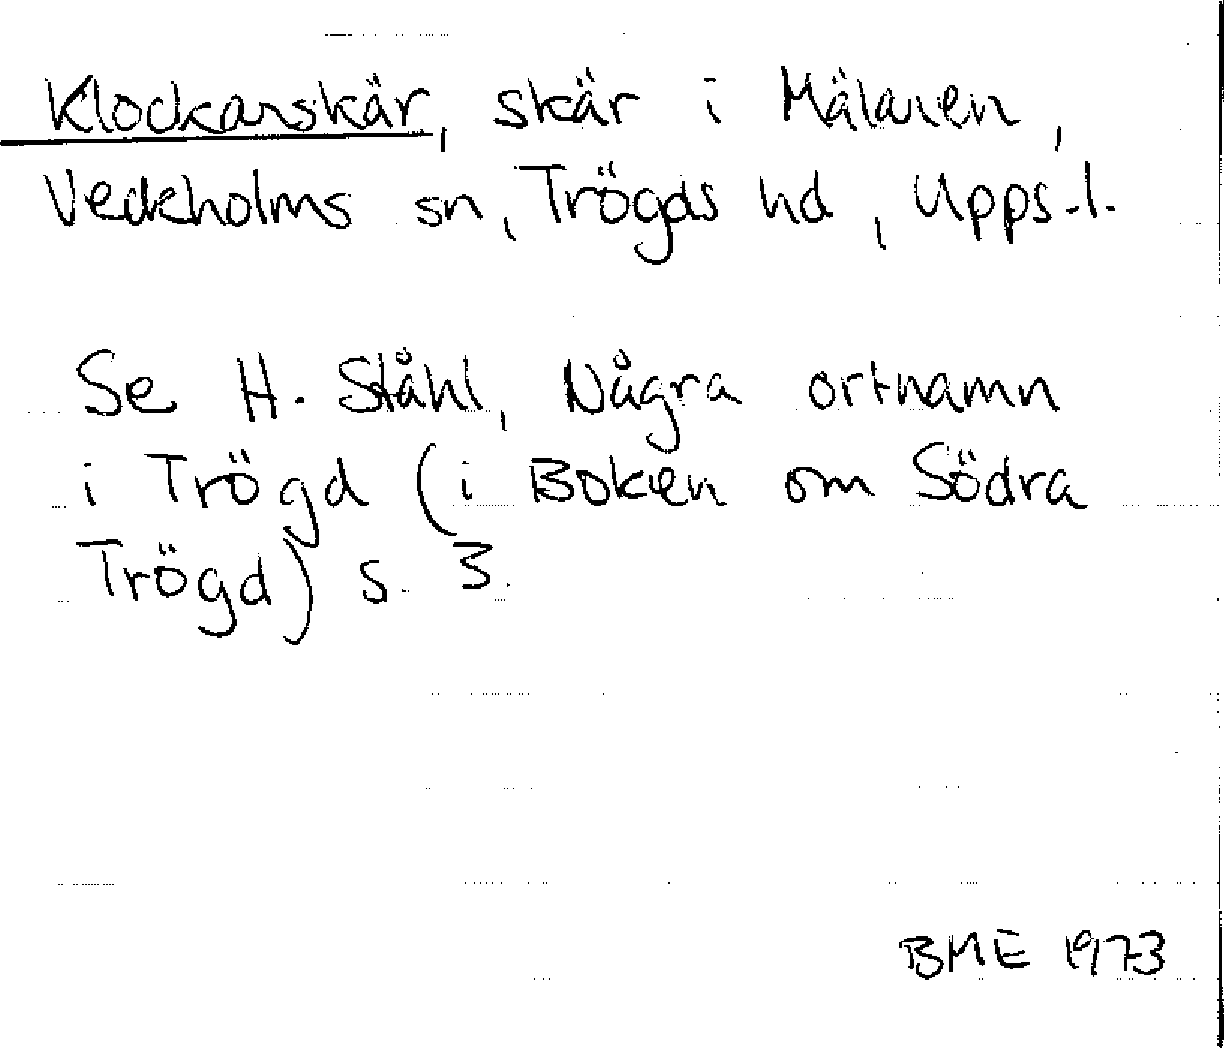 Klockarskär, skär i Mälaren,
Veckholms sn, Trögds hd, Upps.l.
Se H. Ståhl, Några ortnamn
i Trögd (i Boken om Södra
Trögd) s. 3.
BME 1973